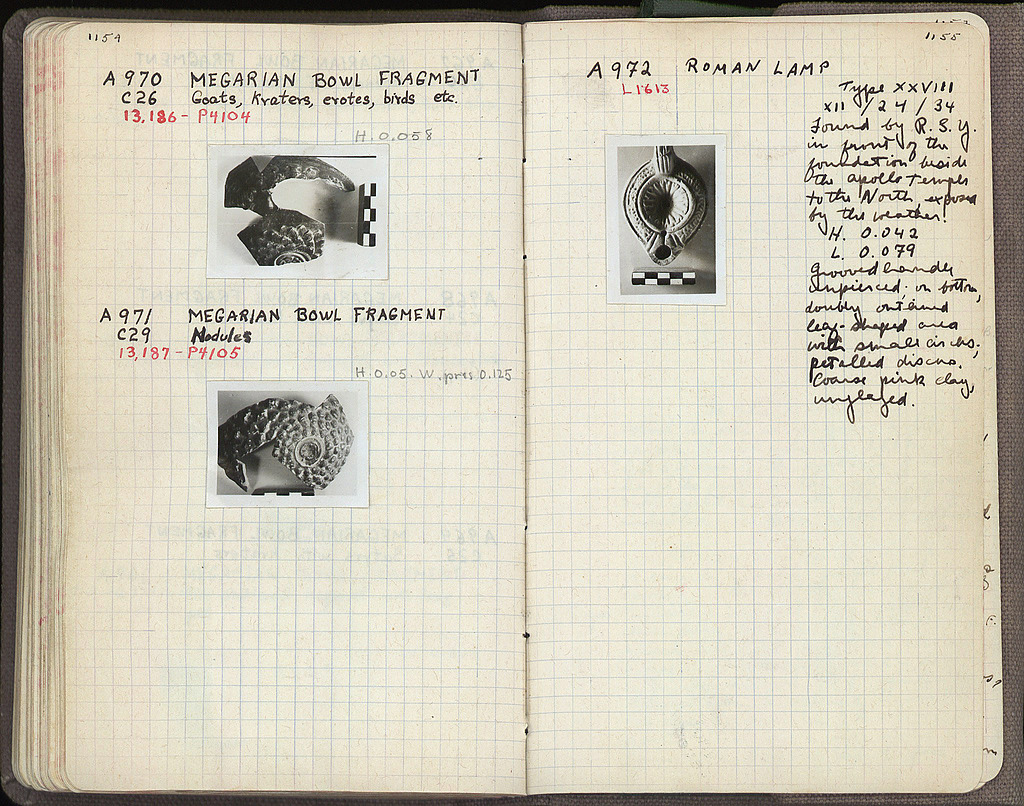 1154
A 970 MEGARIAN BOWL FRAGMENT
C 26 Goats, Kraters, erotes, birds etc.
13,186 - P4104
H. 0.058
A 971 MEGARIAN BOWL FRAGMENT
C 29 Nodules
13,187 - P4105
H. 0.05. W. pres 0.125
1155
A 972 ROMAN LAMP
L 1613
Type XXVIII
XII / 24 / 34
Found by R. S. Y.
in front of the
foundation beside
the Apollo Temple
to the North, exposed
by the weather.
H. 0.042
L. 0.079
Grooved handle
unpierced; on bottom,
doubly outlined
leaf-shaped area
with small circles;
petalled discus.
Coarse pink clay,
unglazed.